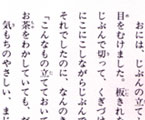 おには、じぶんの立て
目をむけました。板きれを
じぶんで切って、くぎづけ
にこにこしながらじぶんで
それでしたのに、なんのき
「こんなもの立てておいて
お茶をわかしていても、
気もちのやさしい、ま